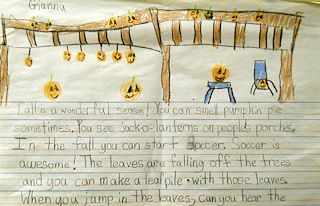 Gianna
Fall is a wonderful season! You can smell pumpkin pie
sometimes. You see jack-o-lanterns on people's porches.
In the fall you can start Soccer. Soccer is
awesome! The leaves are falling off the trees
and you can make a leaf pile with those leaves.
When you jump in the leaves, can you hear the